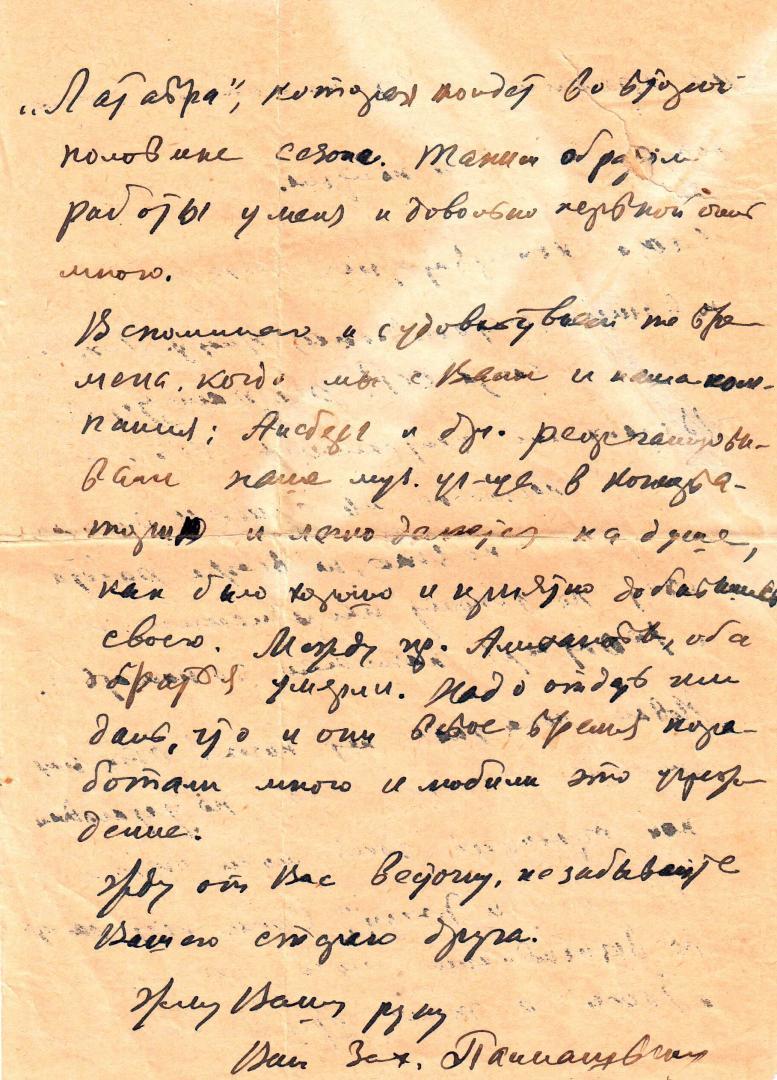 „Латавра", которая пойдет во второй
половине сезона. Таким образом
работы у меня и довольно нервной очень
много.
Вспоминаю с удовольствием те вре-
мена, когда мы с Вами и наша ком-
пания; Аисберг и др. реорганизовы-
вали наше муз. уч-ще в консерва-
торию и легко делается на душе,
как было хорошо и приятно добавить
своего. Между пр. Алихановы, оба
братья умерли. Надо отдать им
дань, что и они в свое время пора-
ботали много и любили это учреж-
дение.
Жду от Вас весточку, не забывайте
Вашего старого друга.
Жму Вашу руку
Ваш Зах. Палиашвили